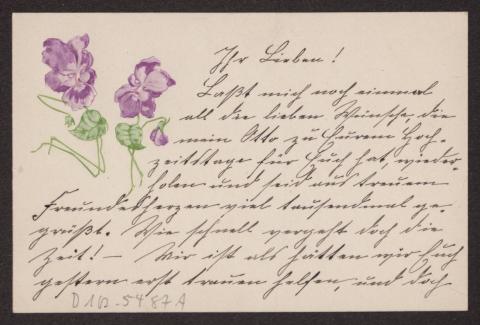 Ihr Lieben!
Laßt mich noch einmal
all die lieben Wünsche, die
mein Otto zu Eurem Hoch-
zeitstage für Euch hat, wieder-
holen und seid aus treuem
Freundesherzen viel tausendmal ge-
grüßt. Wie schnell vergeht doch die
Zeit! – Mir ist als hätten wir Euch
gestern erst trauen helfen, und doch
D 162-5487A